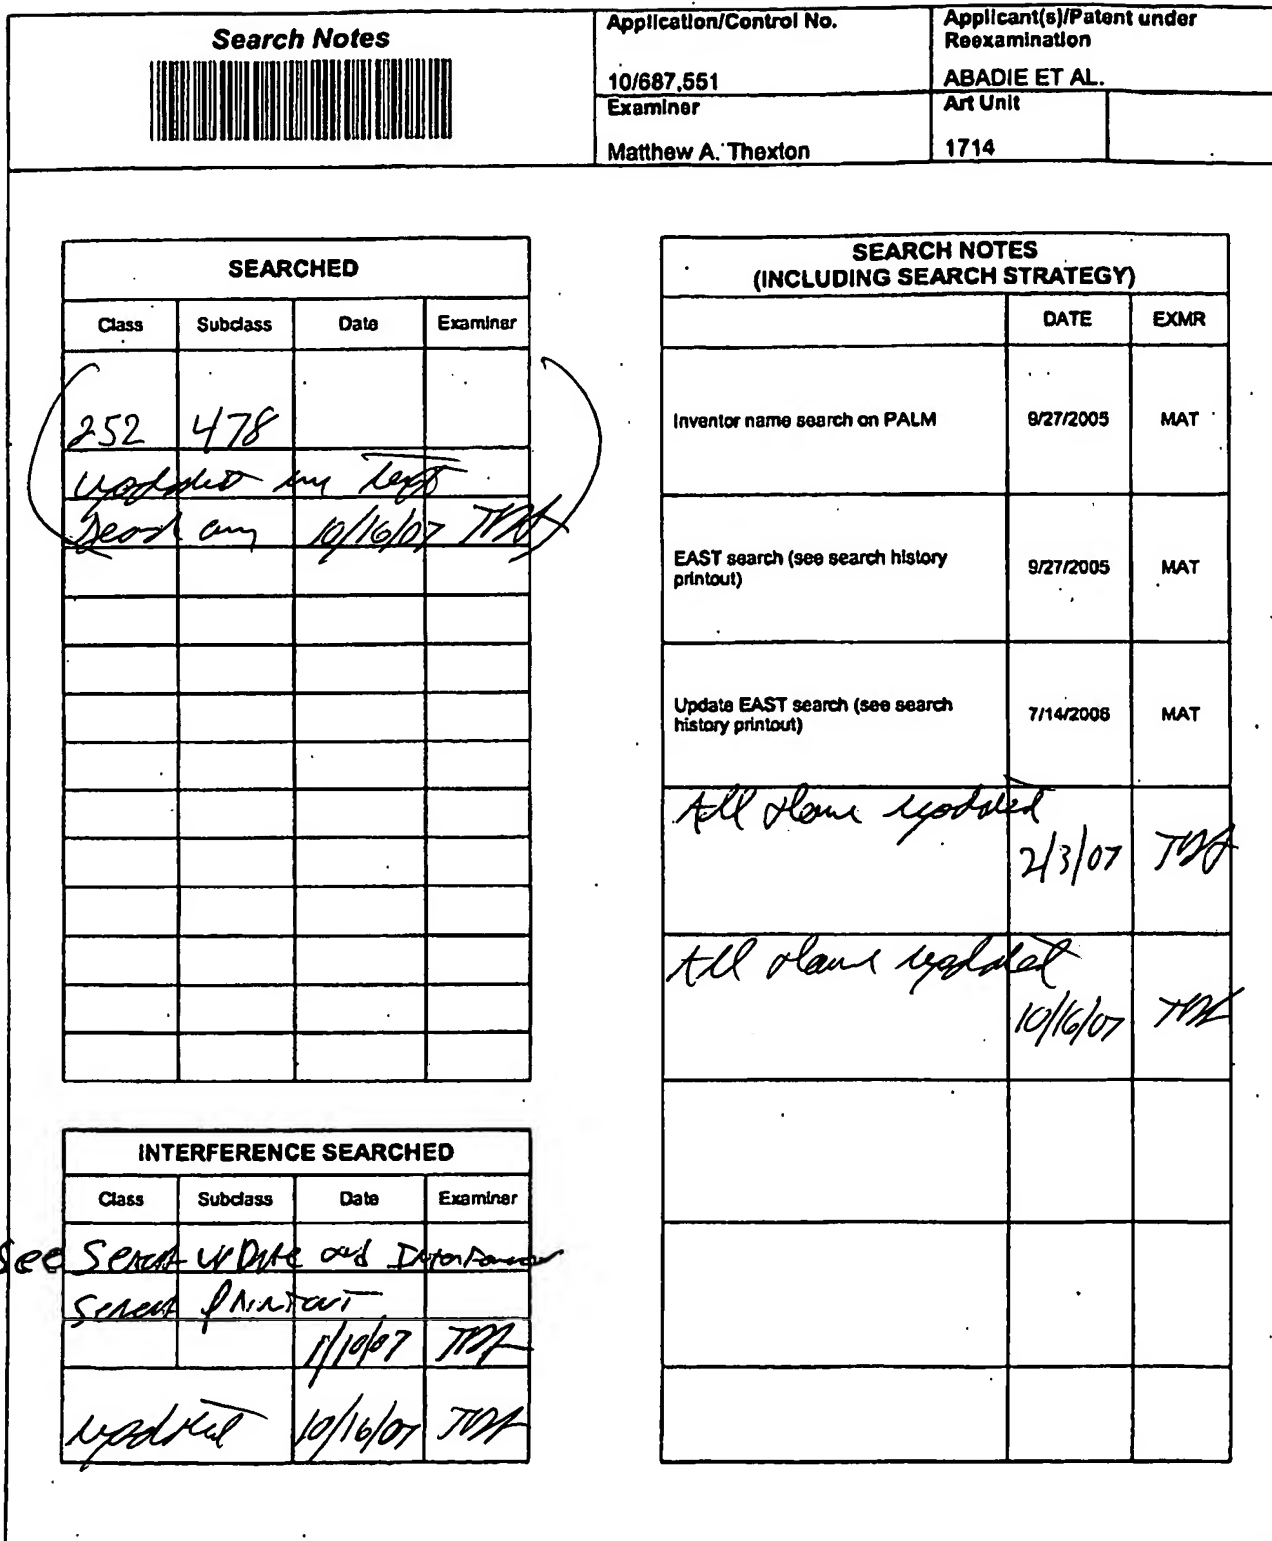 Search Notes
Application/Control No.
10/687,551
Applicant(s)/Patent under
Reexamination
ABADIE ET AL.
Examiner
Matthew A. Thexton
Art Unit
1714
SEARCHED
Class Subclass Date Examiner
252 478
updated
10/16/07
INTERFERENCE SEARCHED
Class Subclass Date Examiner
See Search UpDate and Interference
Search Printout
1/10/07
updated 10/16/07
SEARCH NOTES
(INCLUDING SEARCH STRATEGY)
DATE EXMR
Inventor name search on PALM 9/27/2005 MAT
EAST search (see search history
printout) 9/27/2005 MAT
Update EAST search (see search
history printout) 7/14/2006 MAT
All above updated
2/3/07
All above updated
10/16/07